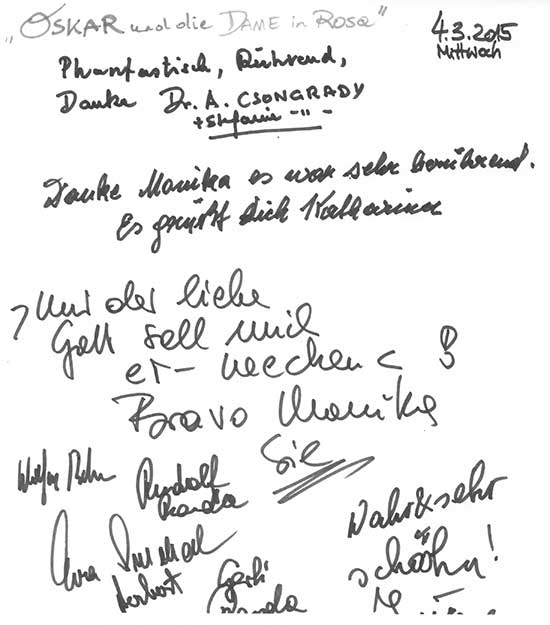 „OSKAR und die DAME in ROSA"
4.3.2015
Mittwoch
Phantastisch, Rührend,
Danke Dr. A. CSONGRADY
+ Stefanie -"-
Danke Monika es war sehr berührend.
Es grüßt dich Katharina
> Nur der liebe
Gott soll mich
er- wecken <
Bravo Monika
Sie
Rudolf
Herbert
Gerti
Wahr & sehr
schön!